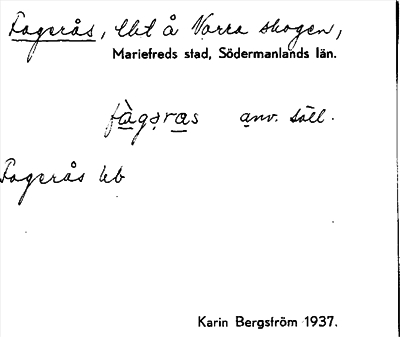 Fagerås, lht å Norra skogen,
Mariefreds stad, Södermanlands län.
fàgəras anv. säll.
Fagerås ub
Karin Bergström 1937.